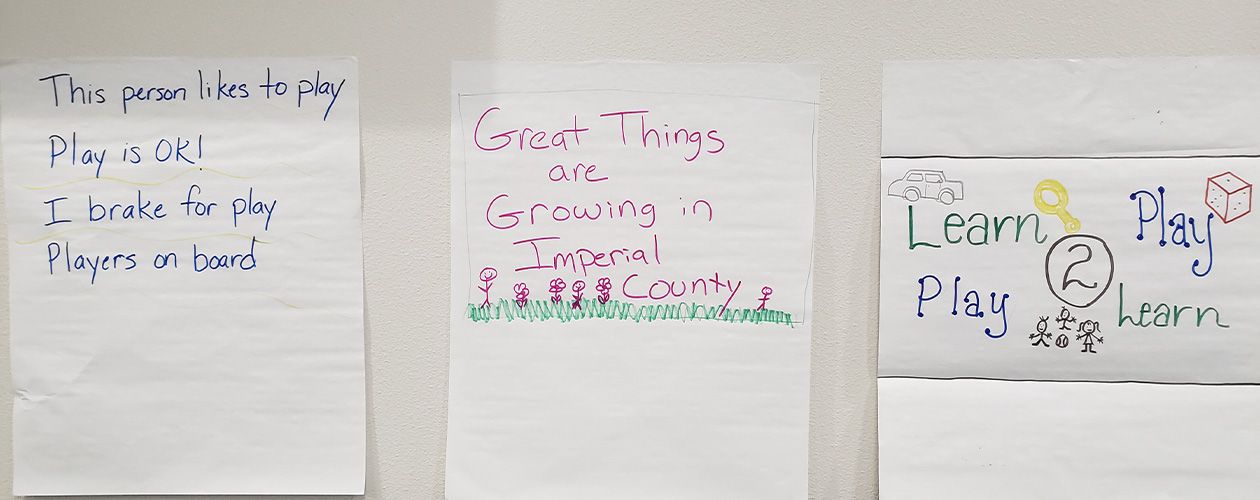 This person likes to play
Play is OK!
I brake for play
Players on board
Great Things
are
Growing in
Imperial
County
Learn Play
2
Play Learn